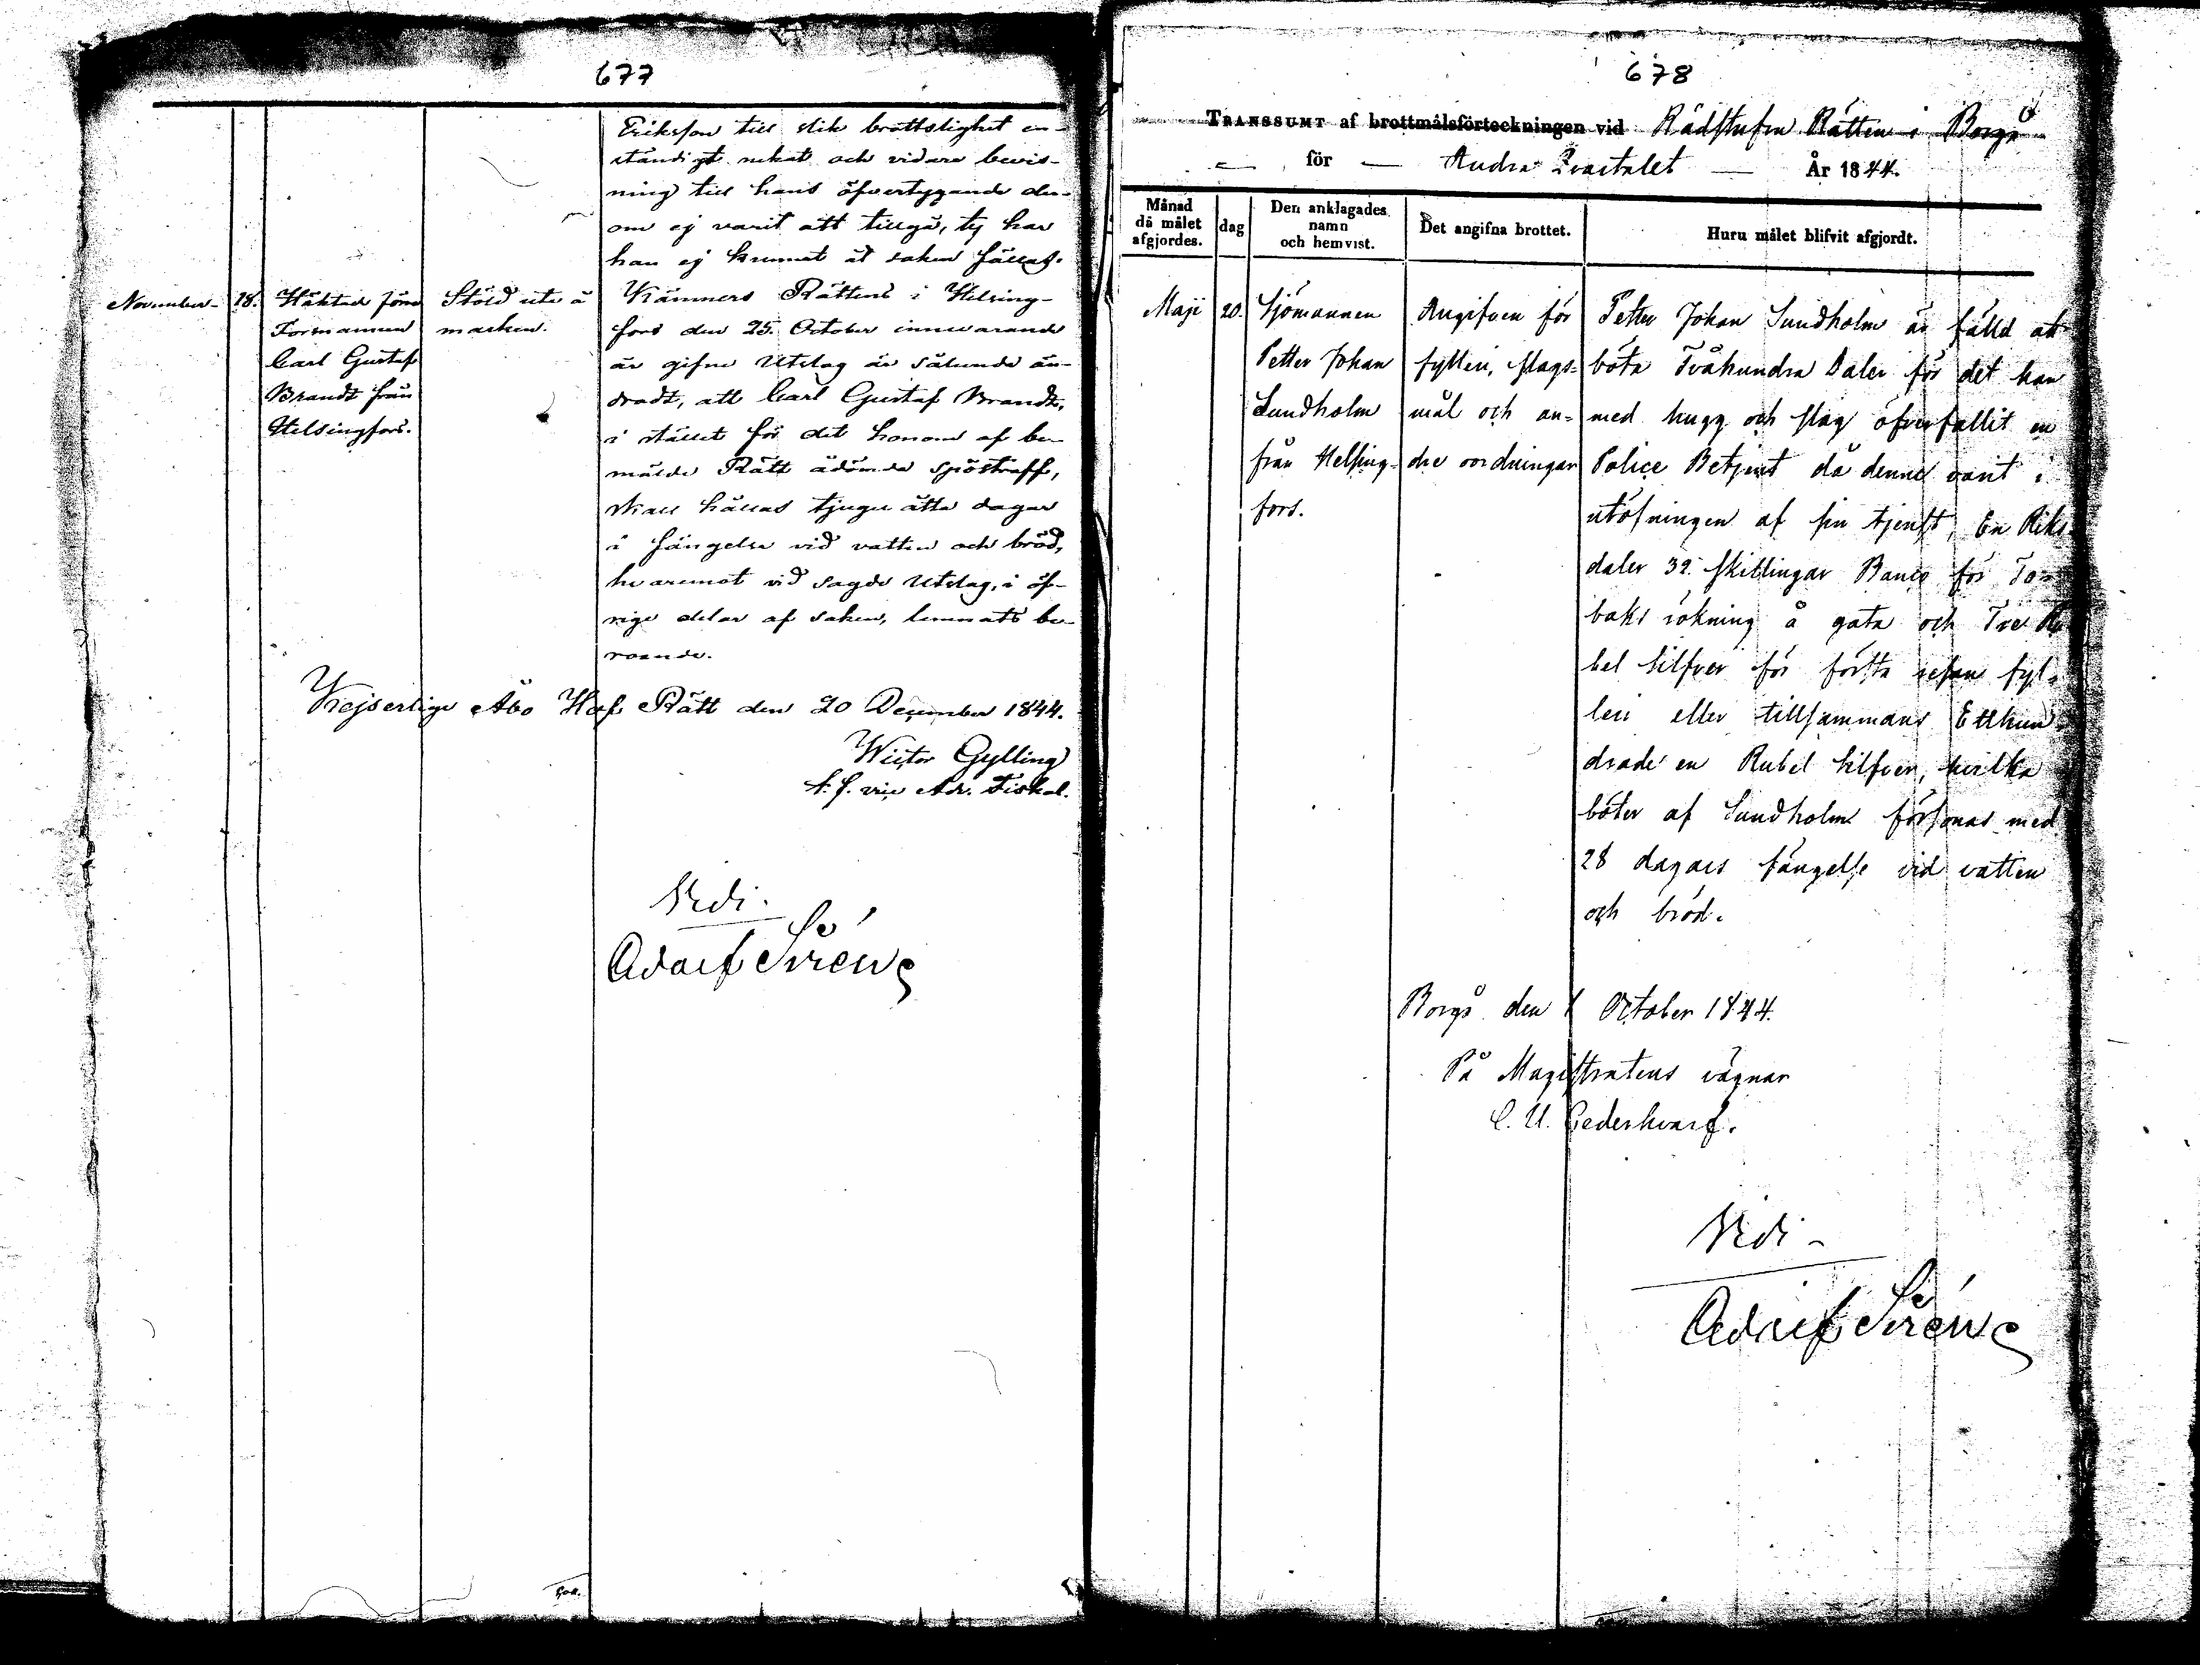 677
Eriksson till slik brottslighet en-
ständigt nekat och vidare bevis-
ning till hans öfvertygande der-
om ej varit att tillgå, ty har
han ej kunnat åt saken fällas.
November 18. Häktade förre
Formannen
Carl Gustaf
Brandt från
Helsingfors.
Stöld ute å
marken.
Kämners Rättens i Helsing-
fors den 25. October innevarande
år gifne Utslag är sålunda än-
dradt, att Carl Gustaf Brandt,
i stället för det honom af be-
mälde Rätt ådömda spöstraff,
skall hållas tjugu åtta dagar
i fängelse vid vatten och bröd,
hvaremot vid sagde Utslag, i öf-
rige delar af saken, lemnats be-
roende.
Kejserlige Åbo Hof Rätt den 20 December 1844.
Victor Gylling
t. f. vice Adv. Fiskal.
Vidi.
Adolf Sirén
678
TRANSSUMT af brottmålsförteckningen vid Rådstufvu Rätten i Borgå
för Andra Qvartalet År 1844.
Månad
då målet
afgjordes.
dag
Den anklagades
namn
och hemvist.
Det angifna brottet.
Huru målet blifvit afgjordt.
Maji 20.
Sjömannen
Petter Johan
Sundholm
från Helsing-
fors.
Angifven för
fylleri, slags-
mål och an-
dre oordningar
Petter Johan Sundholm är fälld att
böta Tvåhundra Daler för det han
med hugg och slag öfverfallit en
Police Betjent då denne varit i
utöfningen af sin tjenst, En Riks-
daler 32 skillingar Banco för To-
baks rökning å gata och Tre Ru-
bel Silfver för första resan fyl-
leri eller tillsammans Etthun-
drade en Rubel Silfver, hvilka
böter af Sundholm försonas med
28 dagars fängelse vid vatten
och bröd.
Borgå den 1 October 1844.
På Magistratens vägnar
C. U. Cederhvarf.
Vidi
Adolf Sirén